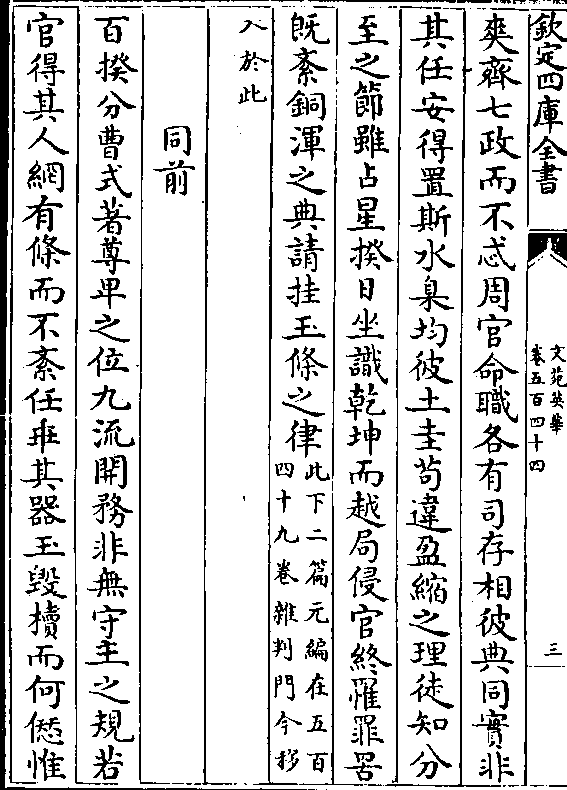 欽定四庫全書
文苑英華
卷五百四十四
三
爽齊七政而不忒周官命職各有司存相彼典同實非
其任安得置斯水臬均彼土圭茍違盈縮之理徒知分
至之節雖占星揆日坐識乾坤而越局侵官終罹罪罟
既紊銅渾之典請挂玉條之律此下二篇元編在五百
四十九卷雜判門今移
入於此
同前
百揆分曹式著尊卑之位九流開務非無守主之規若
官得其人網有條而不紊任乖其器玉毀櫝而何愆惟